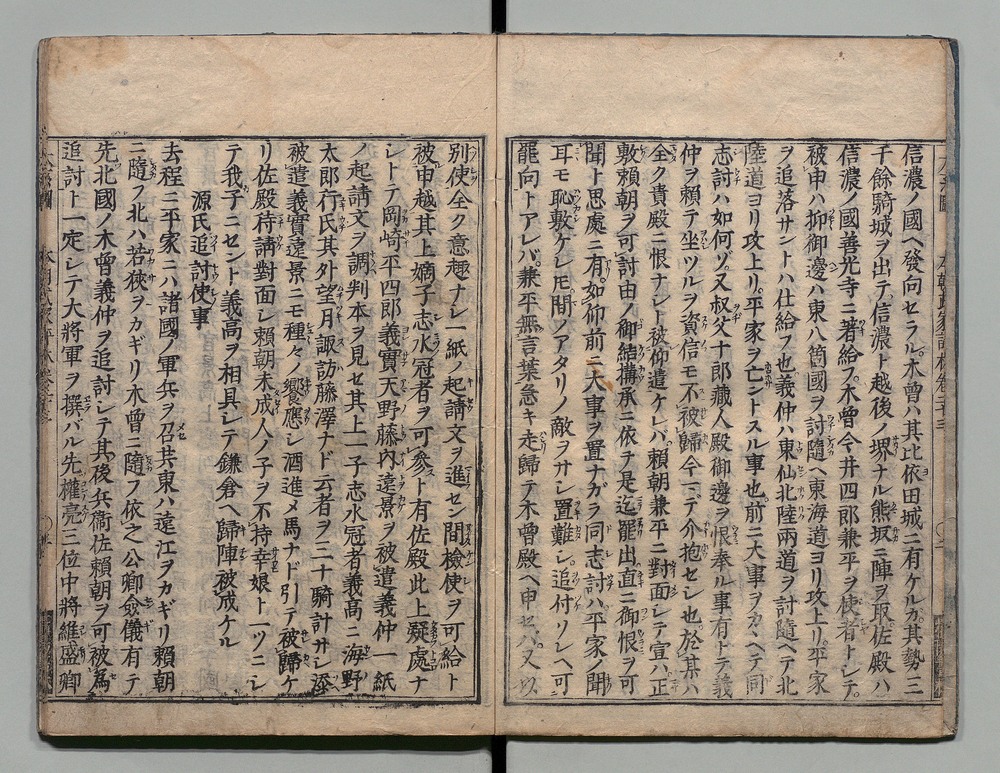 信濃ノ國ヘ發向セラル。木曾ハ其比依田城ニ有ケルガ。其勢三
千餘騎城ヲ出テ信濃ト越後ノ堺ナル熊坂ニ陣ヲ取佐殿ハ
信濃ノ國善光寺ニ著給フ。木曾今井四郎兼平ヲ使者トシテ。
被申ハ抑御邊ハ東八箇國ヲ討隨ヘ東海道ヨリ攻上リ。平家
ヲ追落サントハ仕給フ也義仲ハ東仙北陸兩道ヲ討隨ヘテ北
陸道ヨリ攻上リ。平家ヲ亡ントスル事也。前ニ大事ヲカヽヘテ同
志討ハ如何ゾ。又叔父十郎藏人殿御邊ヲ恨奉ル事有トテ義
仲ヲ賴テ坐ツルヲ資信モ不被歸今ニテ介抱セシ也。於某ハ
全ク貴殿ニ恨ナシト被仰遣ケレバ。賴朝兼平ニ對面シテ宣ハ正
敷賴朝ヲ可討由ノ御結構承ニ依テ是迄罷出面ニ御恨ヲ可
聞ト思處ニ有。如仰前ニ大事ヲ置ナガラ同志討ハ平家ノ聞
耳モ恥敷ケレ𪜈間ノアタリノ敵ヲサシ置難シ。追付ソレヘ可
罷向トアレバ。兼平無言葉急キ走歸テ木曾殿ヘ申セバ。又以
別使全ク意趣ナシ一紙ノ起請文ヲ進セン間檢使ヲ可給ト
被申越其上嫡子志水冠者ヲ可參ト有佐殿此上疑處ナ
シトテ岡崎平四郎義實天野藤內遠景ヲ被遣義仲一紙
ノ起請文ヲ調判本ヲ見セ其上一子志水冠者義高ニ海野
太郎行氏其外望月諏訪藤澤ナド云者ヲ三十騎計サシ添
被遣義實遠景ニモ種々ノ饗應シ酒進メ馬ナド引テ被歸ケ
リ佐殿待請對面シ賴朝未成人ノ子ヲ不持幸娘ト一ツニシ
テ我子ニセント義高ヲ相具シテ鎌倉ヘ歸陣被成ケル
源氏追討使事
去程ニ平家ニハ諸國ノ軍兵ヲ召共東ハ遠江ヲカギリ賴朝
ニ隨フ北ハ若狹ヲカギリ木曾ニ隨フ依之公卿僉儀有テ
先北國ノ木曾義仲ヲ追討シテ其後兵衞佐賴朝ヲ可被爲
追討ト一定シテ大將軍ヲ撰バル先權亮三位中將維盛卿